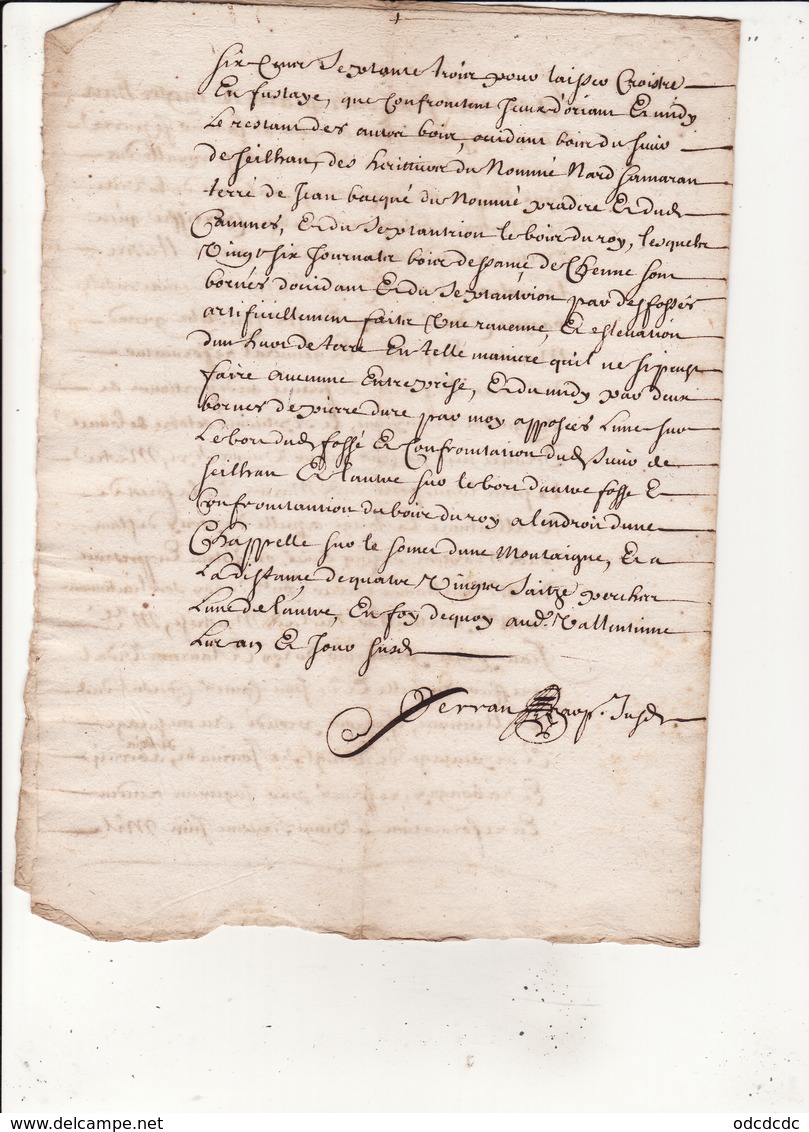 six cens septante trois pour laisser croistre
En fustaye, que Confrontent Jceux d'oriant Et midy
Le restant des autres bois, ocidant bois du sieur
de seilhan, des herittiers du Nommé Nard samaran
terre de Jean bacqué du Nommé pradere Et dud.
Cammes, Et du septantrion le bois du roy, lesquels
Vingt six Journals bois dessance de Chenne sont
bornés d'ocidant Et du septantrion par des fossés
artificiellement faits Une ravenne, Et eslevation
d'un haut de terre En telle maniere qu'il ne si peut
faire aucunne Entreprise, Et du midy par deux
bornes de pierre dure par moy apposées L'une sur
Le bort dud. fossé Et Confrontation dud. sieur de
seilhan Et l'autre sur le bort d'autre fosse E
Confrontannion du bois du roy a l'endroit d'une
Chappelle sur le somet d'une Montaigne, Et a
La distance de quatre Vingts saitze perches
L'une de l'autre, En foy de quoy aud. Vallentinne
Les an Et Jour susd.
Serran
odcdcdc